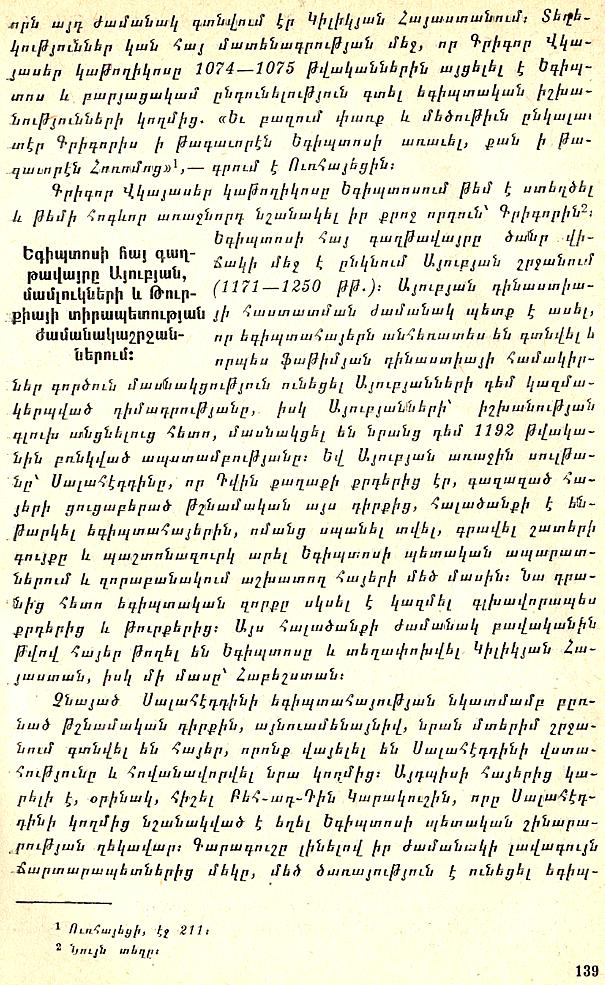 որն այդ ժամանակ գտնվում էր Կիլիկյան Հայաստանում։ Տեղե-
կություններ կան հայ մատենագրության մեջ, որ Գրիգոր Վկա-
յասեր կաթողիկոսը 1074—1075 թվականներին այցելել է Եգիպ-
տոս և բարյացակամ ընդունելություն գտել եգիպտական իշխա-
նությունների կողմից. «Եւ բազում փառք և մեծութիւն ընկալաւ
տէր Գրիգորիս ի թագաւորէն Եգիպտոսի առաւել, քան ի թա-
գաւորէն Հոռոմոց»¹,— գրում է Ուռհայեցին։
Գրիգոր Վկայասեր կաթողիկոսը Եգիպտոսում թեմ է ստեղծել
և թեմի հոգևոր առաջնորդ նշանակել իր քրոջ որդուն՝ Գրիգորին²։
Եգիպտոսի հայ գաղ-
թավայրը Այուբյան,
մամլուկների և Թուր-
քիայի տիրապետության
ժամանակաշրջան-
ներում։
Եգիպտոսի հայ գաղթավայրը ծանր վի-
ճակի մեջ է ընկնում Այուբյան շրջանում
(1171—1250 թթ.)։ Այուբյան դինաստիա-
յի հաստատման ժամանակ պետք է ասել,
որ եգիպտահայերն անհեռատես են գտնվել և
որպես ֆաթիմյան դինաստիայի համակիր-
ներ գործուն մասնակցություն ունեցել Այուբյանների դեմ կազմա-
կերպված դիմադրությանը, իսկ Այուբյանների՝ իշխանության
գլուխ անցնելուց հետո, մասնակցել են նրանց դեմ 1192 թվակա-
նին բռնկված ապստամբությանը։ Եվ Այուբյան առաջին սուլթա-
նը՝ Սալահէդդինը, որ Դվին քաղաքի քրդերից էր, գազազած հա-
յերի ցուցաբերած թշնամական այս դիրքից, հալածանքի է են-
թարկել եգիպտահայերին, ոմանց սպանել տվել, գրավել շատերի
գույքը և պաշտոնազուրկ արել Եգիպտոսի պետական ապարատ-
ներում և զորաբանակում աշխատող հայերի մեծ մասին։ Նա դրա-
նից հետո եգիպտական զորքը սկսել է կազմել գլխավորապես
քրդերից և թուրքերից։ Այս հալածանքի ժամանակ բավականին
թվով հայեր թողել են Եգիպտոսը և տեղափոխվել Կիլիկյան Հա-
յաստան, իսկ մի մասը՝ Հաբեշստան։
Չնայած Սալահէդդինի եգիպտահայության նկատմամբ բըռ-
նած թշնամական դիրքին, այնուամենայնիվ, նրան մտերիմ շրջա-
նում գտնվել են հայեր, որոնք վայելել են Սալահէդդինի վստա-
հությունը և հովանավորվել նրա կողմից։ Այդպիսի հայերից կա-
րելի է, օրինակ, հիշել Բեհ-ադ-Դին Կարակուշին, որը Սալահէդ-
դինի կողմից նշանակված է եղել Եգիպտոսի պետական շինարա-
րության ղեկավար։ Գարագուշը լինելով իր ժամանակի լավագույն
ճարտարապետներից մեկը, մեծ ծառայություն է ունեցել եգիպ-
¹ Ուռհայեցի, էջ 211։
² Նույն տեղը։
139